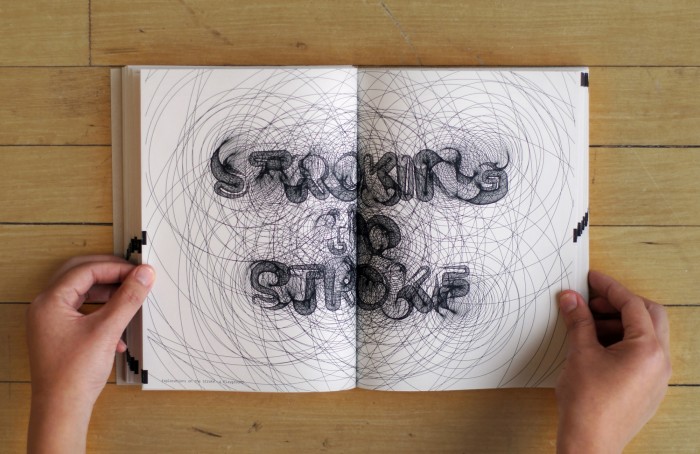 STROKING
to
STROKE